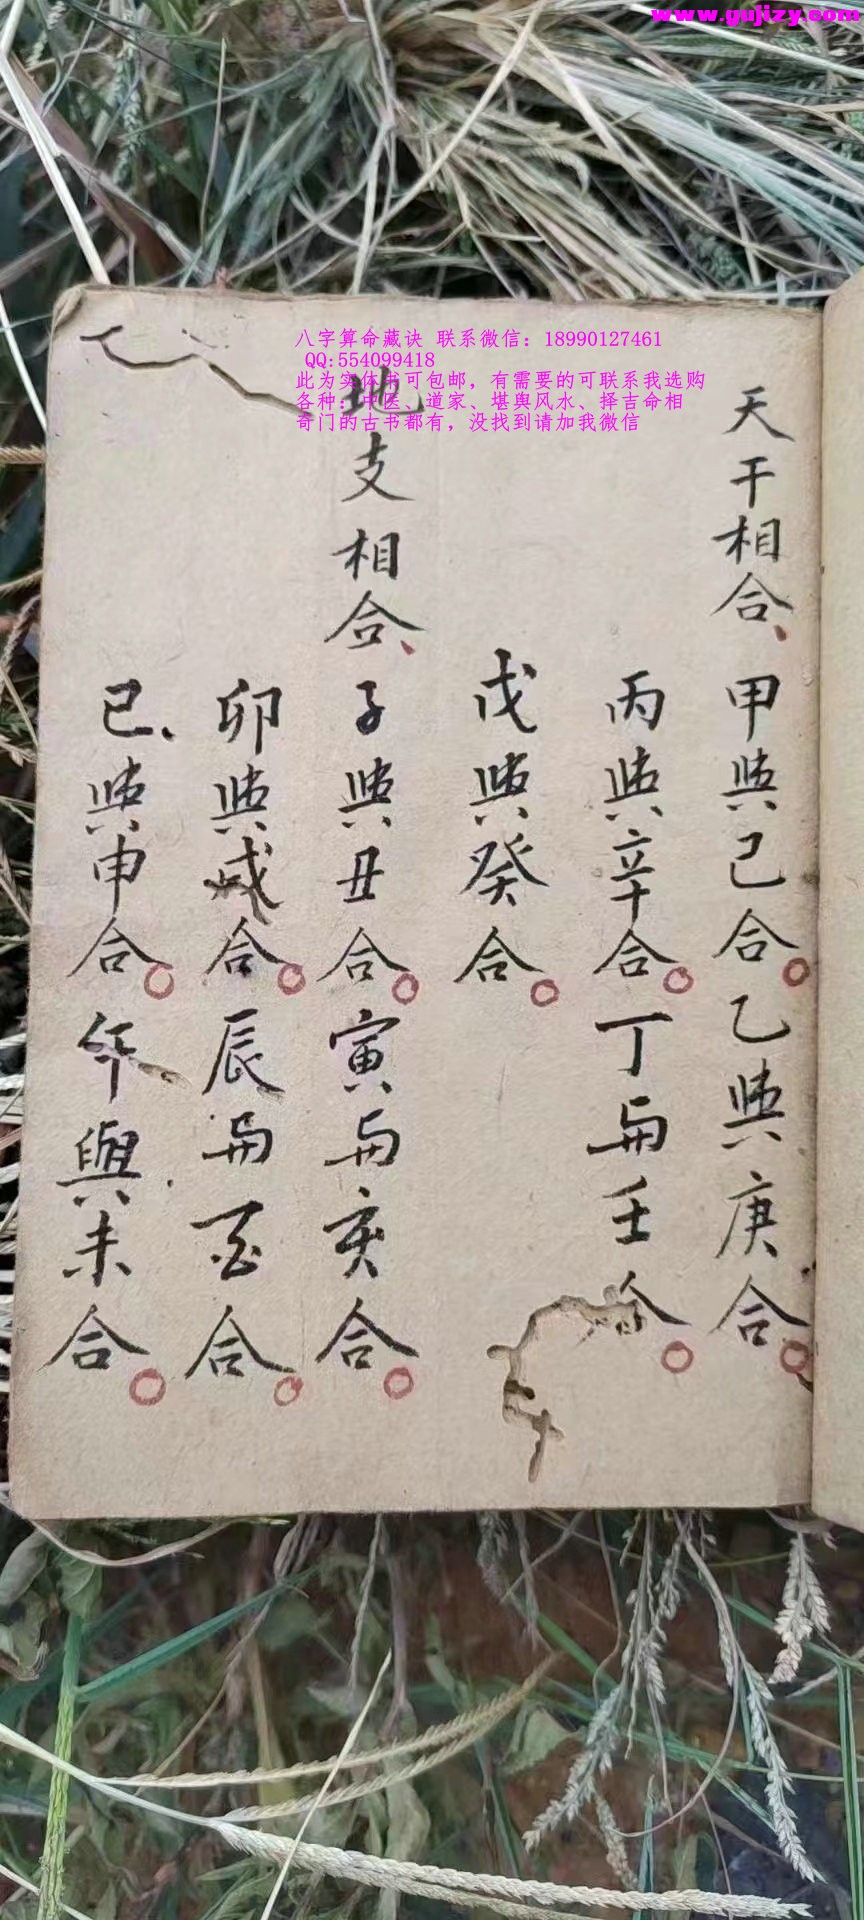 www.gujizy.com
八字算命藏诀 联系微信：18990127461
QQ:554099418
此为实体书可包邮，有需要的可联系我选购
各种：中医、道家、堪舆风水、择吉命相
奇门的古书都有，没找到请加我微信
天干相合、甲與己合○乙與庚合○
丙與辛合○丁与壬合○
戊與癸合○
地支相合、子與丑合○寅与亥合○
卯與戌合○辰与酉合○
巳與申合○午與未合○